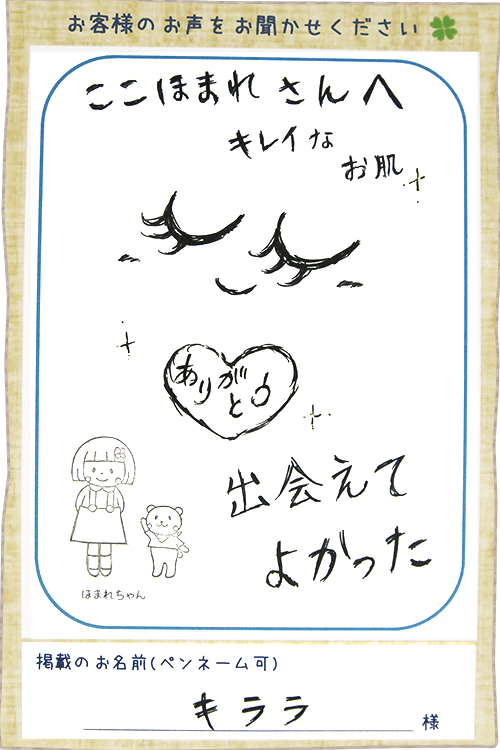 お客様のお声をお聞かせください
ここほまれさんへ
キレイな
お肌
ありがとう
出会えて
よかった
ほまれちゃん
掲載のお名前(ペンネーム可)
キララ 様